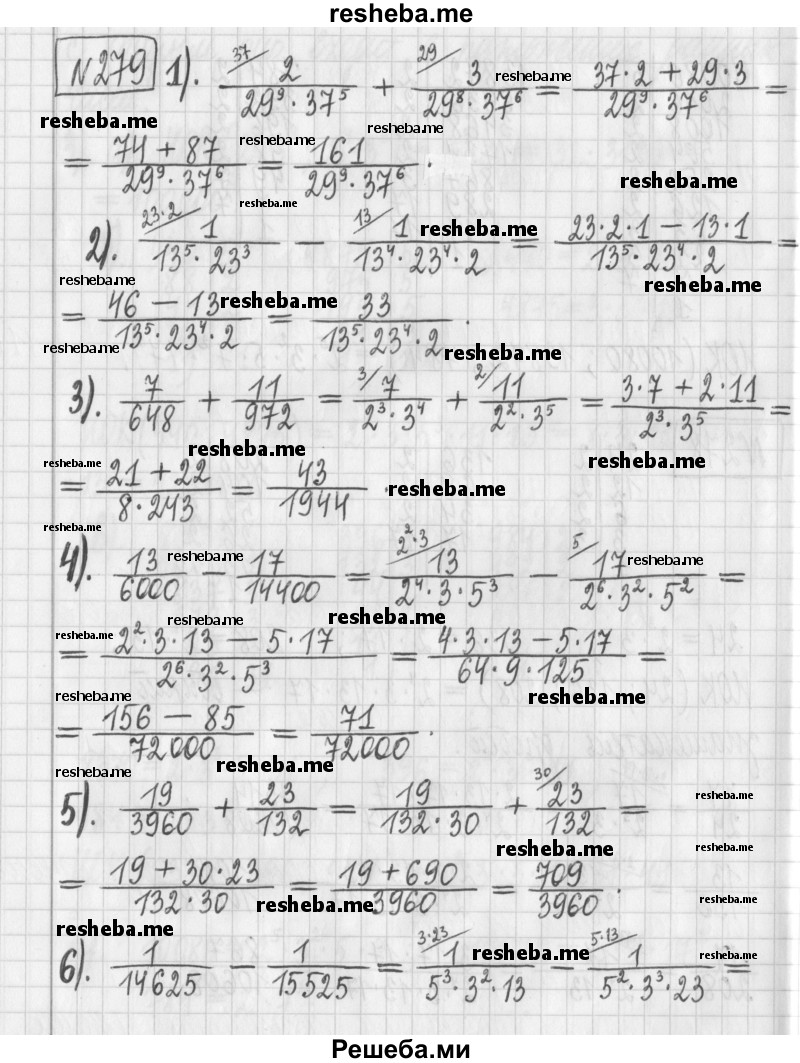 resheba.me
№279 1). ³⁷/ 2/(29⁹·37⁵) + ²⁹/ 3/(29⁸·37⁶) = (37·2 + 29·3)/(29⁹·37⁶) =
resheba.me
resheba.me resheba.me
= (74 + 87)/(29⁹·37⁶) = 161/(29⁹·37⁶).
resheba.me resheba.me
resheba.me
2). ²³·²/ 1/(13⁵·23³) − ¹³/ 1/(13⁴·23⁴·2) = (23·2·1 − 13·1)/(13⁵·23⁴·2) =
resheba.me
resheba.me resheba.me
= (46 − 13)/(13⁵·23⁴·2) = 33/(13⁵·23⁴·2).
resheba.me
resheba.me resheba.me
3). 7/648 + 11/972 = ³/ 7/(2³·3⁴) + ²/ 11/(2²·3⁵) = (3·7 + 2·11)/(2³·3⁵) =
resheba.me
resheba.me resheba.me
= (21 + 22)/(8·243) = 43/1944.
resheba.me
resheba.me
4). 13/6000 − 17/14400 = ²²·³/ 13/(2⁴·3·5³) − ⁵/ 17/(2⁶·3²·5²) =
resheba.me resheba.me
resheba.me resheba.me
= (2²·3·13 − 5·17)/(2⁶·3²·5³) = (4·3·13 − 5·17)/(64·9·125) =
resheba.me
resheba.me resheba.me
= (156 − 85)/72000 = 71/72000.
resheba.me resheba.me
5). 19/3960 + 23/132 = 19/(132·30) + ³⁰/ 23/132 =
resheba.me
resheba.me
= (19 + 30·23)/(132·30) = (19 + 690)/3960 = 709/3960.
resheba.me resheba.me
resheba.me
6). 1/14625 − 1/15525 = ³·²³/ 1/(5³·3²·13) − ⁵·¹³/ 1/(5²·3³·23) =
resheba.me resheba.me
Решеба.ми